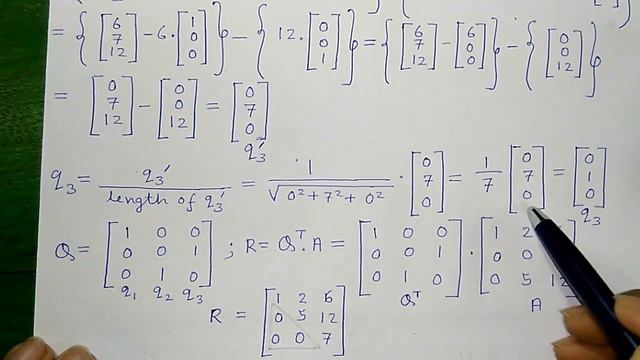 = { [6 7 12] - 6 . [1 0 0] } - { 12 . [0 0 1] } = { [6 7 12] - [6 0 0] } - { [0 0 12] }
= [0 7 12] - [0 0 12] = [0 7 0]
q3'
q3 = q3' / length of q3' = 1 / √(0² + 7² + 0²) . [0 7 0] = 1/7 [0 7 0] = [0 1 0]
q3
Q = [1 0 0 ; 0 0 1 ; 0 1 0] ; R = Qᵀ. A = [1 0 0 ; 0 0 1 ; 0 1 0] . [1 2 ; 0 0 ; 0 5 12]
q1 q2 q3 Qᵀ A
R = [1 2 6 ; 0 5 12 ; 0 0 7]